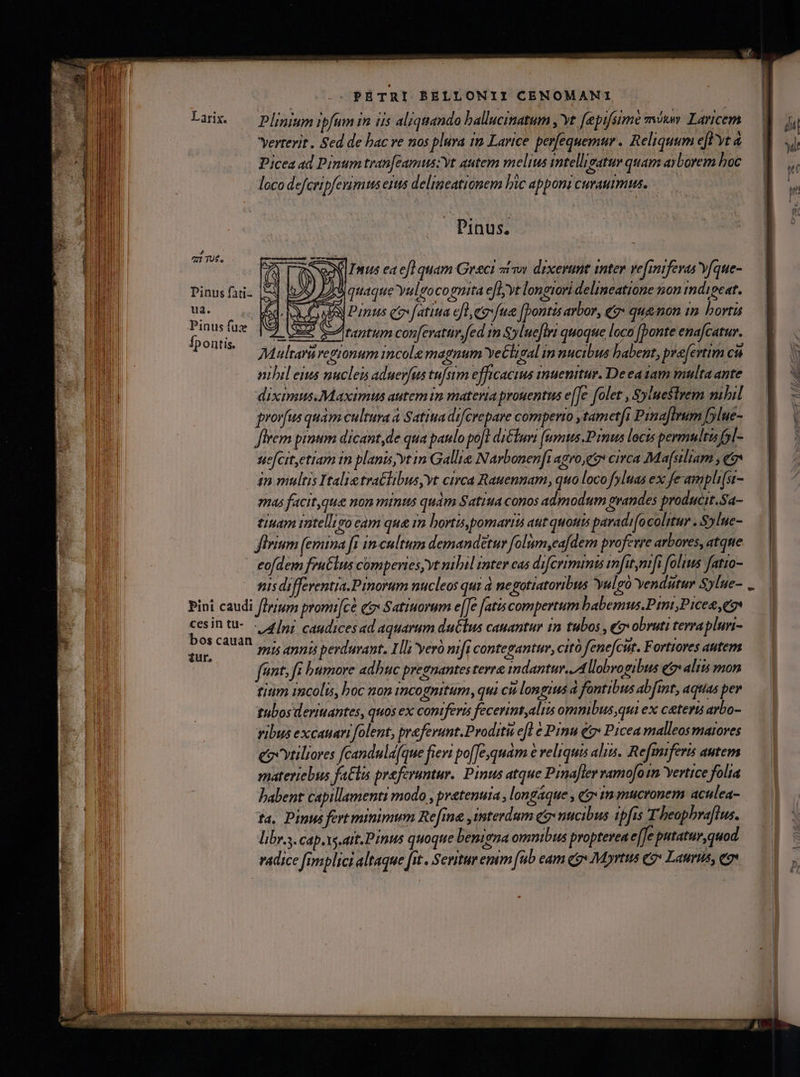 PETRI BELLONII CENOMANI
Larix.
Plinium ipsum in iis aliquando hallucinatum, vt sæpissimè πεύκην Laricem
verterit. Sed de hac re nos plura in Larice persequemur. Reliquum est vt à
Picea ad Pinum transeamus: vt autem melius intelligatur quam arborem hoc
loco descripserimus eius delineationem hîc apponi curauimus.
Pinus.
πίτυς.
Pinus sati-
ua.
Pinus suæ
spontis.
Inus ea est quam Græci πίτυν dixerunt inter resiniferas vsque-
quaque vulgo cognita est, vt longiori delineatione non indigeat.
Pinus & satiua est, & suæ spontis arbor, & quæ non in hortis
tantum conseratur, sed in Syluestri quoque loco sponte enascatur.
Multarū regionum incolæ magnum vectigal in nucibus habent, præsertim cū
nihil eius nucleis aduersus tussim efficacius inuenitur. De ea iam multa ante
diximus. Maximus autem in materia prouentus esse solet, Syluestrem nihil
prorsus quàm cultura à Satiua discrepare comperio, tametsi Pinastrum sylue-
strem pinum dicant, de qua paulo post dicturi sumus. Pinus locis permultis syl-
uescit, etiam in planis, vt in Galliæ Narbonensi agro, & circa Massiliam, &
in multis Italiæ tractibus, vt circa Rauennam, quo loco syluas ex se amplissi-
mas facit, quæ non minus quàm Satiua conos admodum grandes producit. Sa-
tiuam intelligo eam quæ in hortis, pomariis aut quouis paradiso colitur. Sylue-
strium semina si in cultum demandētur solum, easdem proferre arbores, atque
eosdem fructus comperies, vt nihil inter eas discriminis insit, nisi folius satio-
nis differentia. Pinorum nucleos qui à negotiatoribus vulgò vendūtur Sylue-
Pini caudi
ces in tu-
bos cauan
tur.
strium promiscè & Satiuorum esse satis compertum habemus. Pini, Piceæ, &
Alni caudices ad aquarum ductus cauantur in tubos, & obruti terra pluri-
mis annis perdurant. Illi verò nisi contegantur, citò senescūt. Fortiores autem
sunt, si humore adhuc pregnantes terræ mdantur. Allobrogibus & aliis mon
tium incolis, hoc non incognitum, qui cū longius à fontibus absint, aquas per
tubos deriuantes, quos ex coniferis fecerint, aliis omnibus, qui ex cæteris arbo-
ribus excauari solent, præferunt. Proditū est è Pinu & Picea malleos maiores
& vtiliores scandulásque fieri posse, quàm è reliquis aliis. Resiniferis autem
materiebus factis præferuntur. Pinus atque Pinaster ramoso in vertice folia
habent capillamenti modo, prætenuia, longáque, & in mucronem aculea-
ta. Pinus fert minimum Resinæ, interdum & nucibus ipsis Theophrastus.
libr. 3. cap. 15. ait. Pinus quoque benigna omnibus propterea esse putatur, quod
radice simplici altaque sit. Seritur enim sub eam & Myrtus & Laurus, &